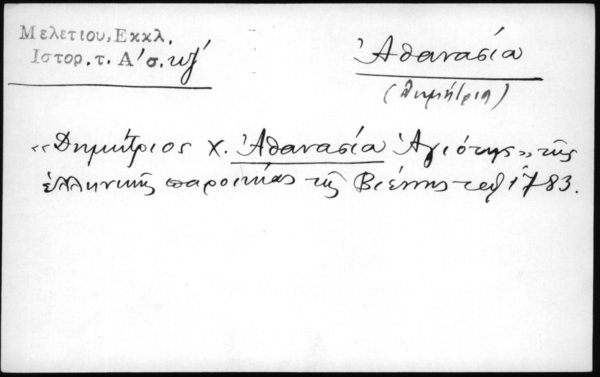 Μελετίου, Εκκλ.
Ιστορ. τ. Α' σ. κζ'
Ἀθανασία
(Δημήτρια)
«Δημήτριος Χ. Ἀθανασία Ἁγιώτης» τῆς
ἑλληνικῆς παροικίας τῆς Βιέννης τῷ 1783.